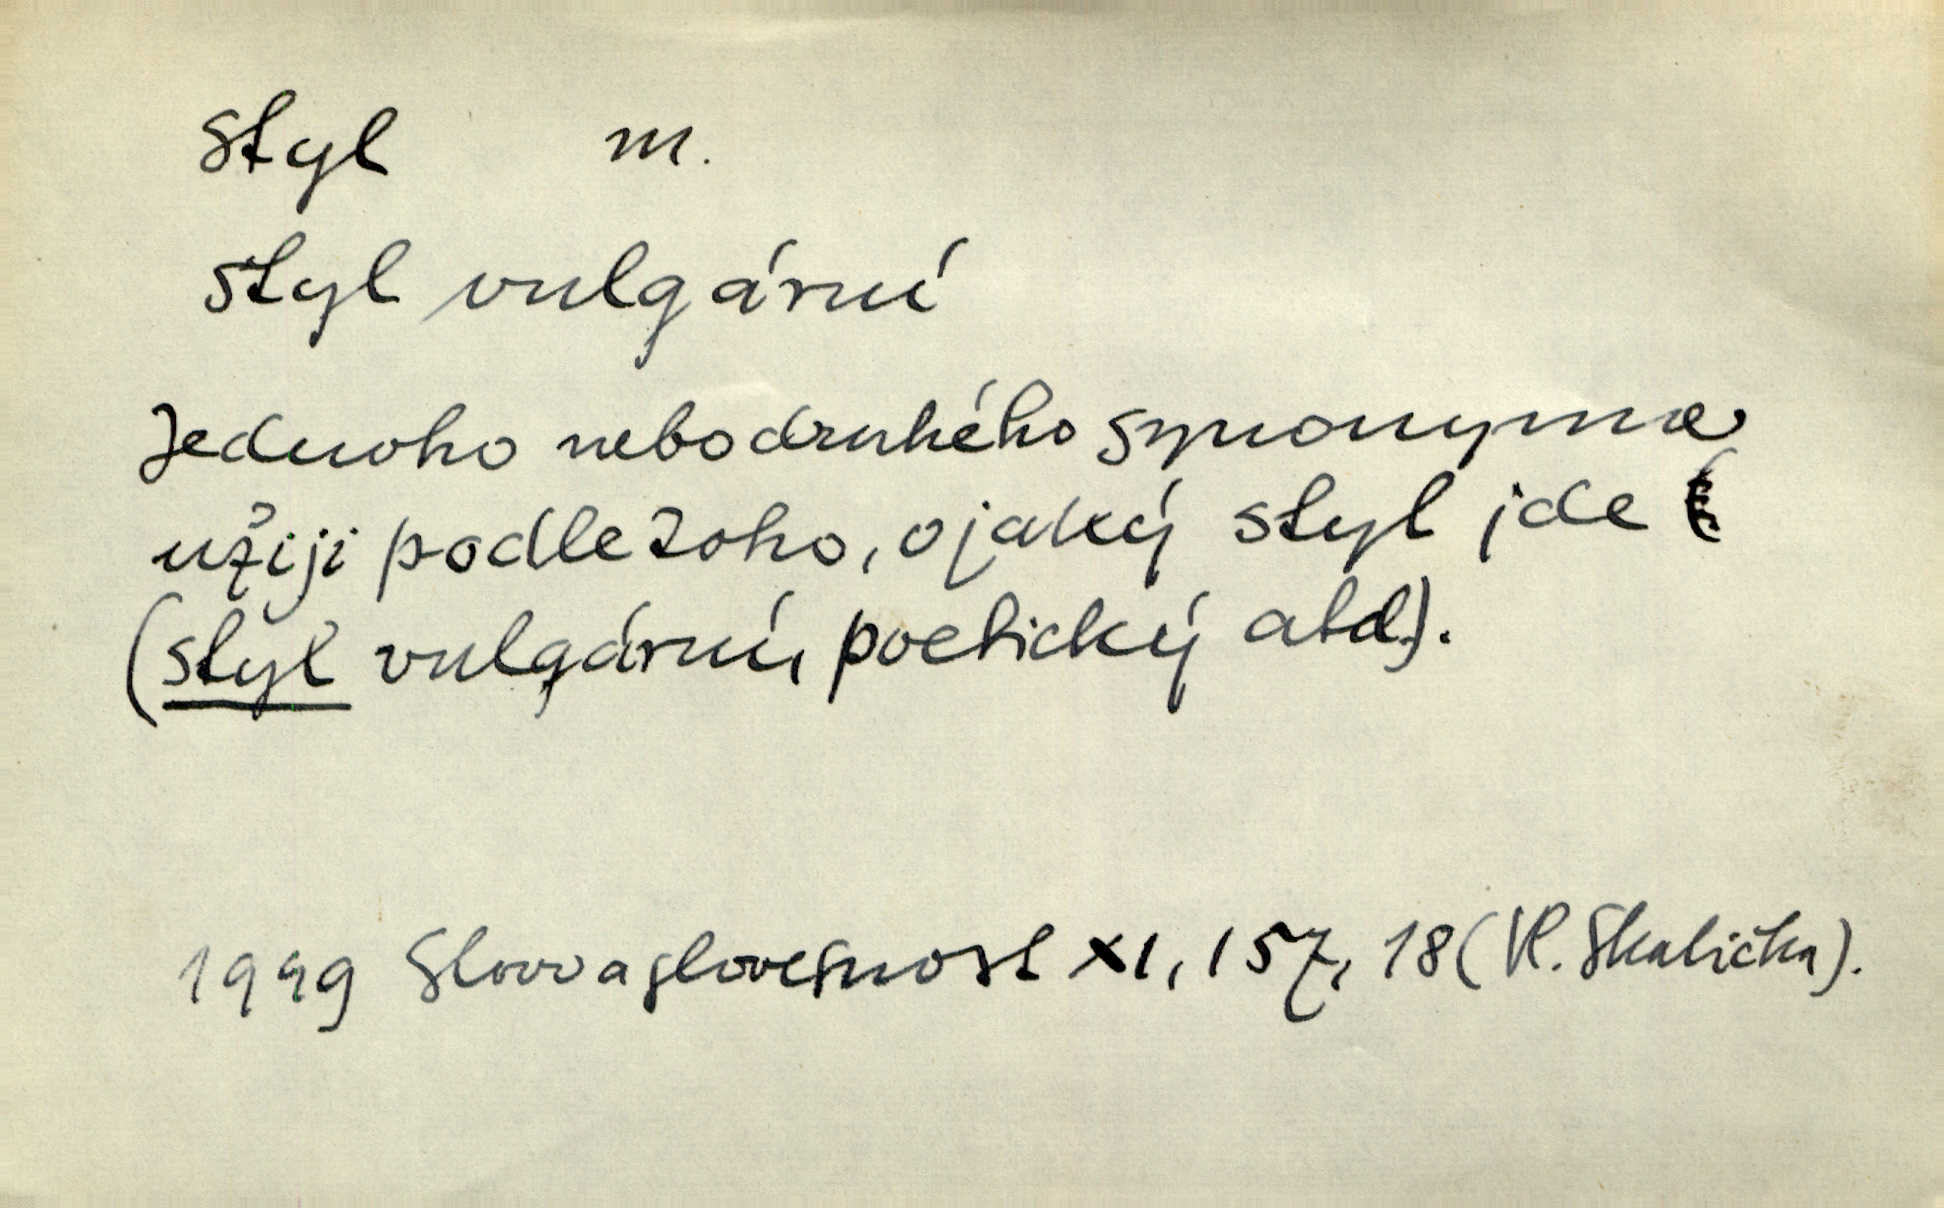 styl m.
styl vulgární
Jednoho nebo druhého synonyma
užiji podle toho, o jaký styl jde
(styl vulgární, poetický atd.).
1949 Slovo a slovesnost XI, 157, 18 (Vl. Skalička).